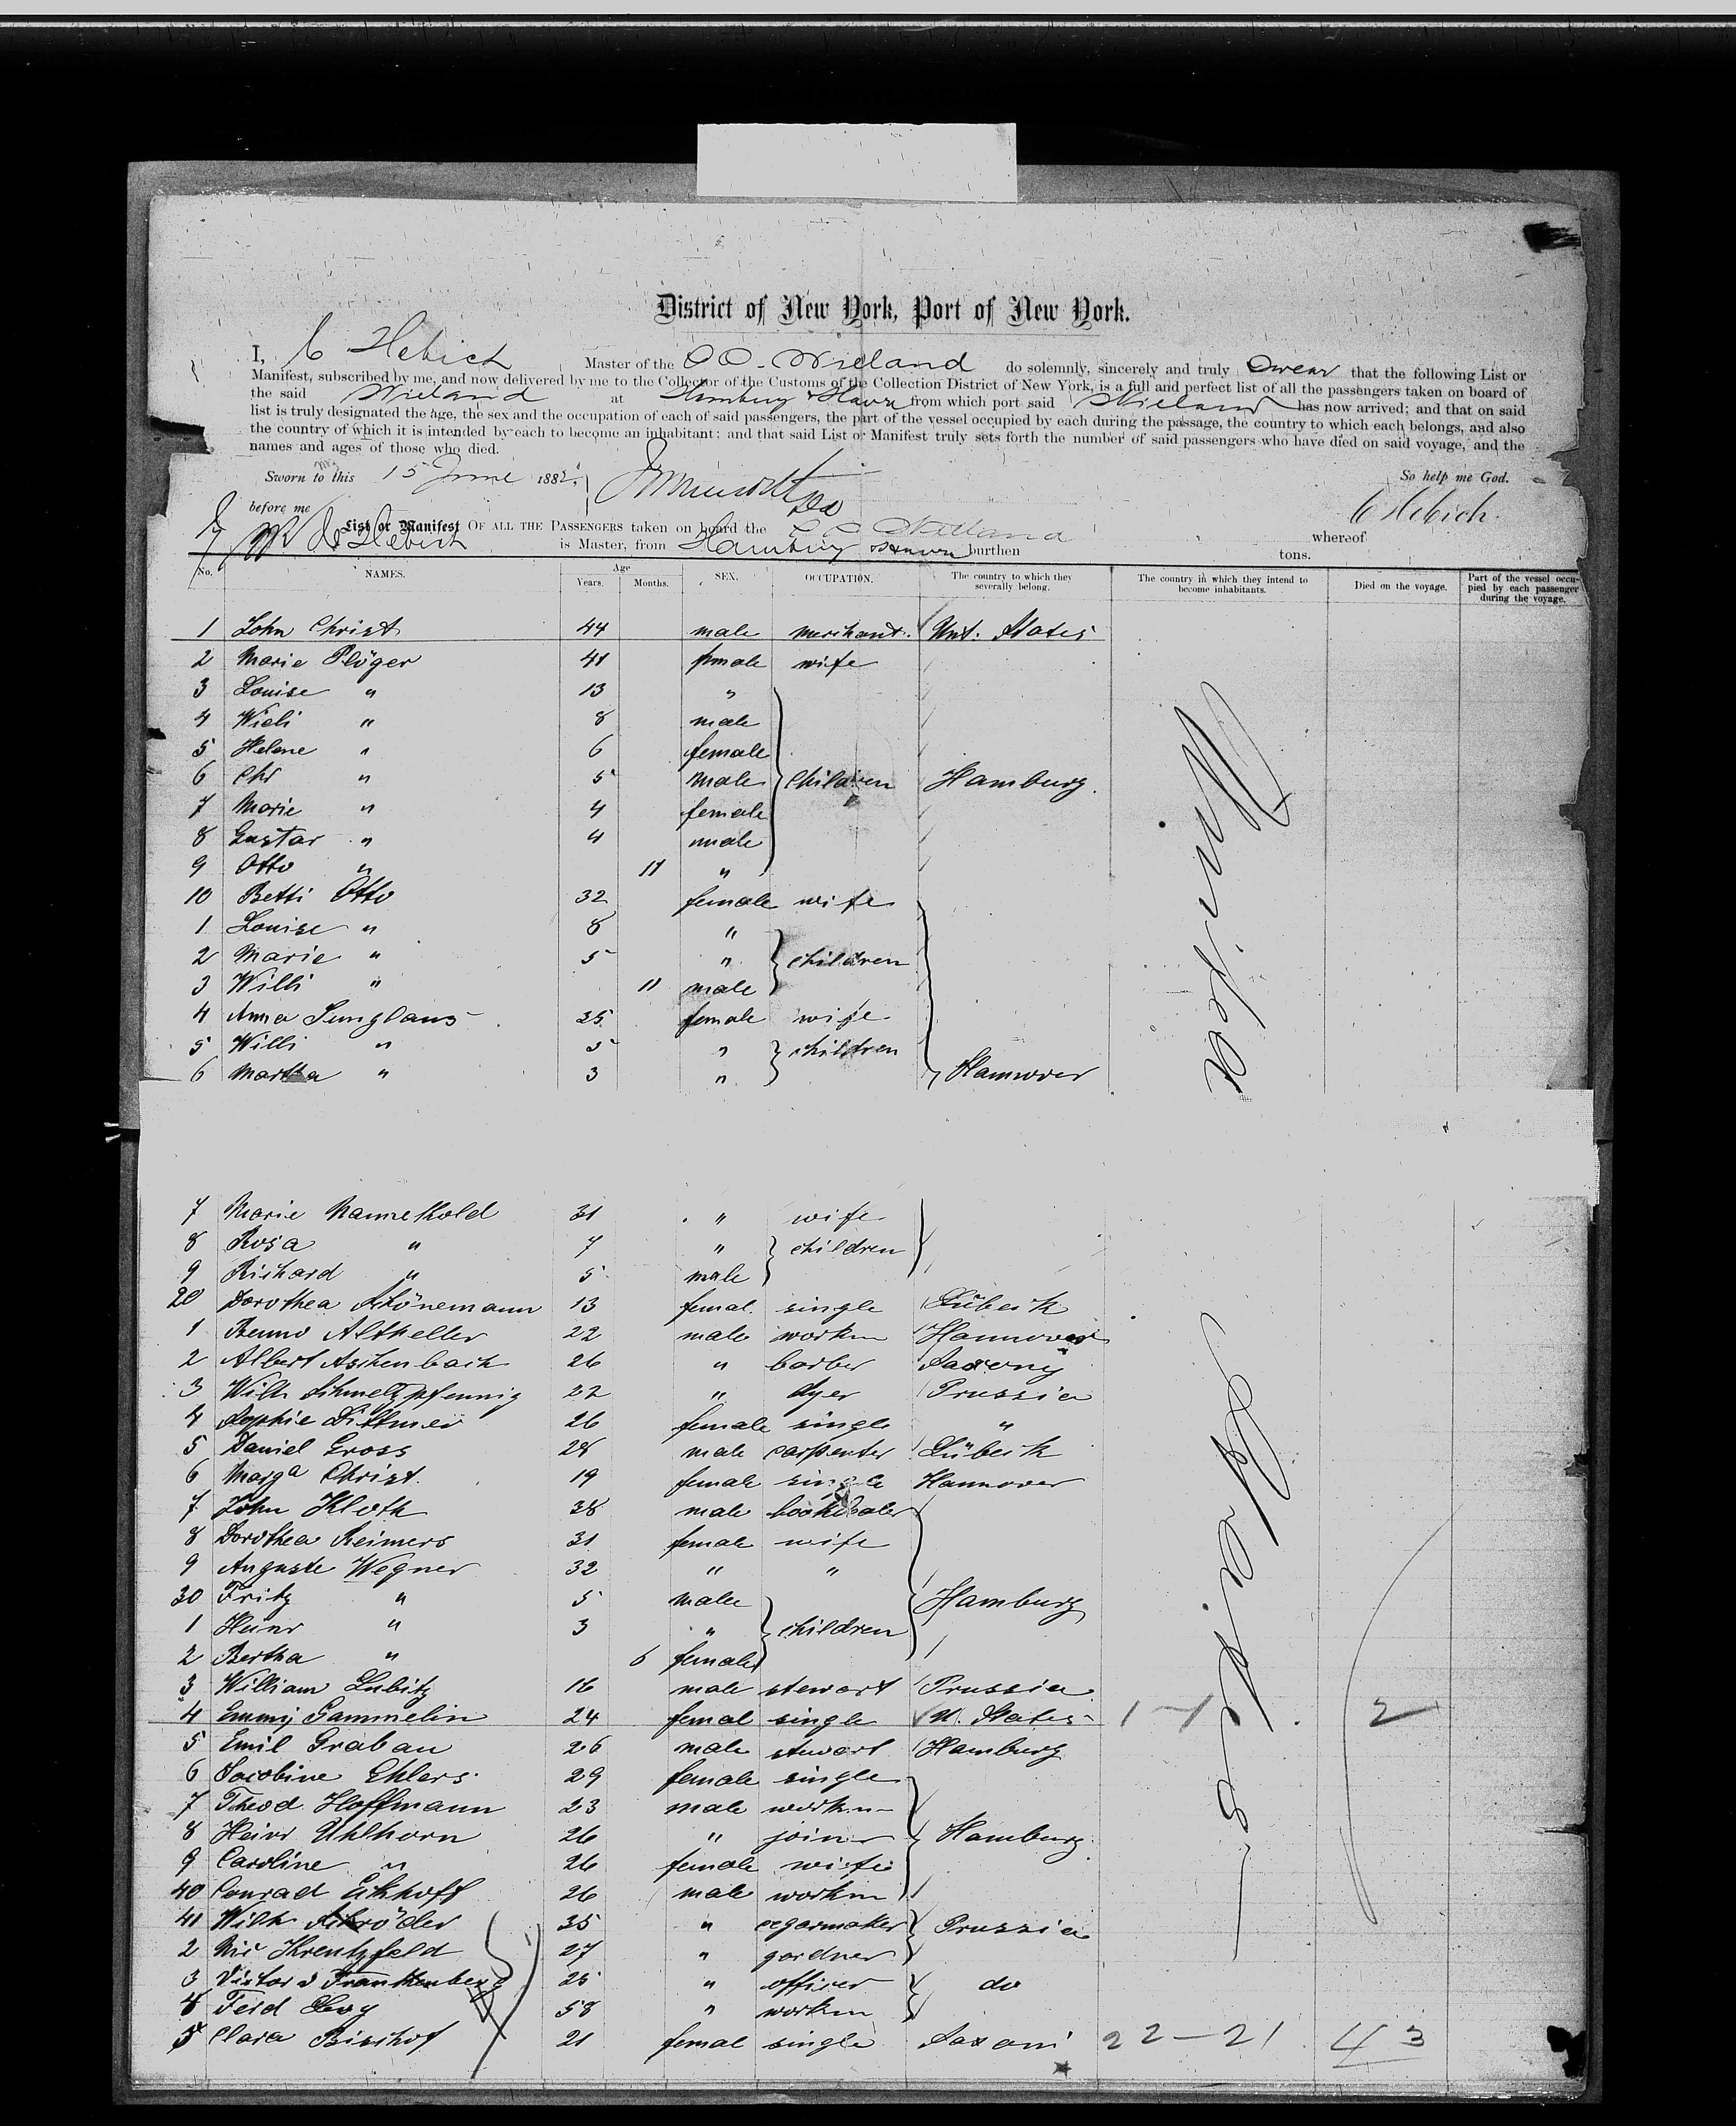 District of New York, Port of New York.
I, C Hebich Master of the SS. Wieland do solemnly, sincerely and truly Swear that the following List or
Manifest, subscribed by me, and now delivered by me to the Collector of the Customs of the Collection District of New York, is a full and perfect list of all the passengers taken on board of
the said Wieland at Hamburg & Havre from which port said Wieland has now arrived; and that on said
list is truly designated the age, the sex and the occupation of each of said passengers, the part of the vessel occupied by each during the passage, the country to which each belongs, and also
the country of which it is intended by each to become an inhabitant: and that said List or Manifest truly sets forth the number of said passengers who have died on said voyage, and the
names and ages of those who died.
Sworn to this 15 June 1882 So help me God.
before me C Hebich.
List or Manifest OF ALL THE PASSENGERS taken on board the S S Wieland whereof
Hebich is Master, from Hamburg & Havre burthen tons.
No. NAMES. Age Years. Months. SEX. OCCUPATION. The country to which they severally belong. The country in which they intend to become inhabitants. Died on the voyage. Part of the vessel occupied by each passenger during the voyage.
1 John Christ 44 male merchant. Unt. States
2 Marie Plöger 41 female wife
3 Louise " 13 "
4 Wieli " 8 male
5 Helene " 6 female
6 Chr " 5 male children Hamburg.
7 Marie " 4 female
8 Gustav " 4 male
9 Otto " 11 "
10 Betti Otto 32 female wife
1 Louise " 8 "
2 Marie " 5 " children
3 Willi " 11 male
4 Anna Junglaus 25 female wife
5 Willi " 5 " children
6 Martha " 3 " Hannover
7 Marie Mannethold 31 " wife
8 Rosa " 7 " children
9 Richard " 5 male
20 Dorothea Schönemann 13 femal. single Lübeck
1 Benno Altheller 22 male workm Hannover
2 Albert Aschenbach 26 " barber Saxony
3 Wilh Schmeltzpfennig 22 " dyer Prussia
4 Sophie Dittmer 26 female single "
5 Daniel Gross 28 male carpenter Lübeck
6 Marga Christ. 19 female single Hannover
7 John Kloth 38 male
8 Dorothea Reimers 31 female wife
9 Auguste Wegner 32 " "
30 Fritz " 5 male Hamburg
1 Heinr " 3 " children
2 Bertha " 6 female
3 William Lubitz 16 male stewart Prussia
4 Emmy Gammelin 24 femal single U. States 1-1 2
5 Emil Grabau 26 male stewart Hamburg
6 Jacobine Ehlers 29 female single
7 Theod. Hoffmann 23 male workm
8 Heinr Uhlhorn 26 " joiner Hamburg
9 Caroline " 26 female wife
40 Conrad Eikhoff 26 male workm
41 Wilh Schröder 35 " cegarmaker Prussia
2 Nic Krentzfeld 27 " gardner
3 Victor v Frankenberg 25 " officer do
4 Ferd Levy 58 " workm
5 Clara Bischof 21 femal single Saxoni 22-21 43